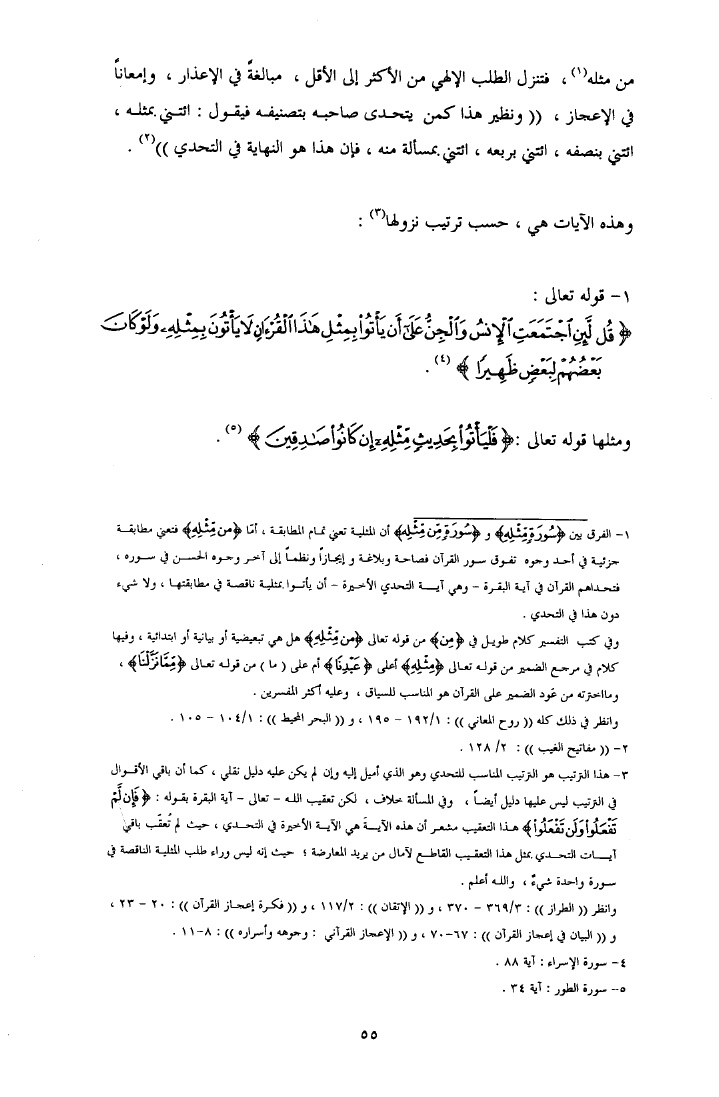 من مثله(١) ، فتنزل الطلب الإلهي من الأكثر إلى الأقل ، مبالغةً في الإعذار ، وإمعاناً
في الإعجاز ، (( ونظير هذا كمن يتحدى صاحبه بتصنيفه فيقول : ائتني بمثله ،
ائتني بنصفه ، ائتني بربعه ، ائتني بمسألة منه ، فإن هذا هو النهاية في التحدي ))(٢) .
وهذه الآيات هي ، حسب ترتيب نزولها(٣) :
١- قوله تعالى :
﴿ قُل لَّئِنِ ٱجْتَمَعَتِ ٱلْإِنسُ وَٱلْجِنُّ عَلَىٰٓ أَن يَأْتُوا۟ بِمِثْلِ هَٰذَا ٱلْقُرْءَانِ لَا يَأْتُونَ بِمِثْلِهِۦ وَلَوْ كَانَ
بَعْضُهُمْ لِبَعْضٍ ظَهِيرًا ﴾ (٤) .
ومثلها قوله تعالى :﴿ فَلْيَأْتُوا۟ بِحَدِيثٍ مِّثْلِهِۦٓ إِن كَانُوا۟ صَٰدِقِينَ ﴾ (٥) .
١- الفرق بين ﴿سُورَةٍ مِّثْلِهِ﴾ و ﴿سُورَةٍ مِّن مِّثْلِهِ﴾ أن المثلية تعني تمام المطابقة ، أمّا ﴿من مِّثْلِهِ﴾ فتعني مطابقة
جزئية في أحد وجوه تفوق سور القرآن فصاحة وبلاغة و إيجازاً ونظماً إلى آخر وجوه الحسن في سوره ،
فتحداهم القرآن في آية البقرة - وهي آية التحدي الأخيرة - أن يأتوا بمثلية ناقصة في مطابقتها ، ولا شيء
دون هذا في التحدي .
وفي كتب التفسير كلام طويل في ﴿مِن﴾ من قوله تعالى ﴿من مِّثْلِهِ﴾ هل هي تبعيضية أو بيانية أو ابتدائية ، وفيها
كلام في مرجع الضمير من قوله تعالى ﴿مِثْلِهِ﴾ أعلى ﴿ عَبْدِنَا﴾ أم على ( ما ) من قوله تعالى ﴿مِّمَّا نَزَّلْنَا﴾ ،
ومااخترته من عَود الضمير على القرآن هو المناسب للسياق ، وعليه أكثر المفسرين .
وانظر في ذلك كله (( روح المعاني )) : ١٩٢/١ - ١٩٥ ، و (( البحر المحيط )) : ١٠٤/١ - ١٠٥ .
٢- (( مفاتيح الغيب )) : ٢/ ١٢٨ .
٣- هذا الترتيب هو الترتيب المناسب للتحدي وهو الذي أميل إليه وإن لم يكن عليه دليل نقلي ، كما أن باقي الأقوال
في الترتيب ليس عليها دليل أيضاً ، وفي المسألة خلاف ، لكن تعقيب الله - تعالى - آية البقرة بقوله : ﴿ فَإِن لَّمْ
تَفْعَلُوا۟ وَلَن تَفْعَلُوا۟ ﴾ هذا التعقيب مشعر أن هذه الآيةَ هي الآية الأخيرة في التحدي ، حيث لم تُعقَب باقي
آيات التحدي بمثل هذا التعقيب القاطع لآمال من يريد المعارضة ؛ حيث إنه ليس وراء طلب المثلية الناقصة في
سورة واحدة شيءٌ ، والله أعلم .
وانظر (( الطراز )) : ٣٦٩/٣ - ٣٧٠ ، و (( الإتقان )) : ١١٧/٢ ، و (( فكرة إعجاز القرآن )) : ٢٠ - ٢٣ ،
و (( البيان في إعجاز القرآن )) : ٦٧-٧٠ ، و (( الإعجاز القرآني : وجوهه وأسراره )) : ٨-١١ .
٤- سورة الإسراء : آية ٨٨ .
٥- سورة الطور : آية ٣٤ .
٥٥